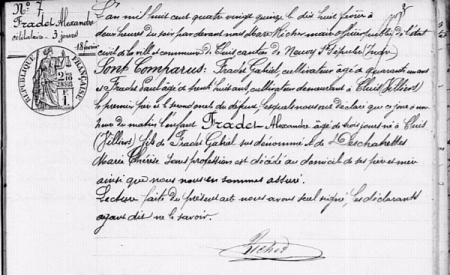 N° 7
Fradet Alexandre
célibataire - 3 jours
18 février
RÉPUBLIQUE FRANÇAISE
L'an mil huit cent quatre vingt quinze le dix huit février à
deux heures du soir par devant nous Marc Hicher maire officier public de l'état
civil de la ville et commune de Cluis canton de Neuvy St Sépulcre Indre
Sont Comparus: Fradet Gabriel, cultivateur âgé de quarante ans
et Fradet âgé de huit ans cultivateur demeurant à Cluis (Villiers)
le premier père et le second du défunt, lesquels nous ont déclaré que ce jour à
heure du matin l'enfant Fradet Alexandre âgé de trois jours né à Cluis
(Villiers) fils de Fradet Gabriel sus dénommé et de Deschatelles
Marie Thérèse sans profession est décédé au domicile de ses père et mère
ainsi que nous nous en sommes assuré.
Lecture faite du présent acte nous avons seul signé, les déclarants
ayant dit ne le savoir.
Hicher